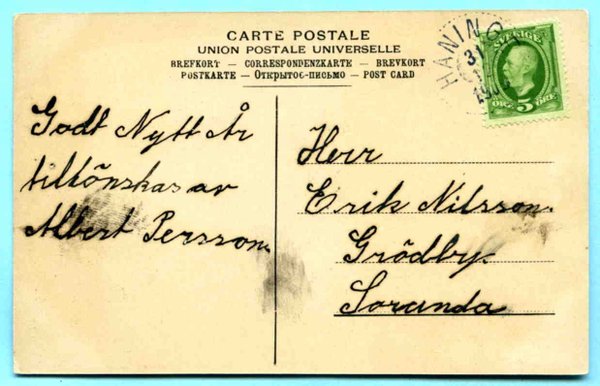 CARTE POSTALE
UNION POSTALE UNIVERSELLE
BREFKORT — CORRESPONDENZKARTE — BREVKORT
POSTKARTE — Открытое-письмо — POST CARD
HANING
31
SVERIGE
ÖRE 5 ÖRE
Godt Nytt År
tillönskas av
Albert Persson.
Herr
Erik Nilsson.
Grödby.
Sorunda